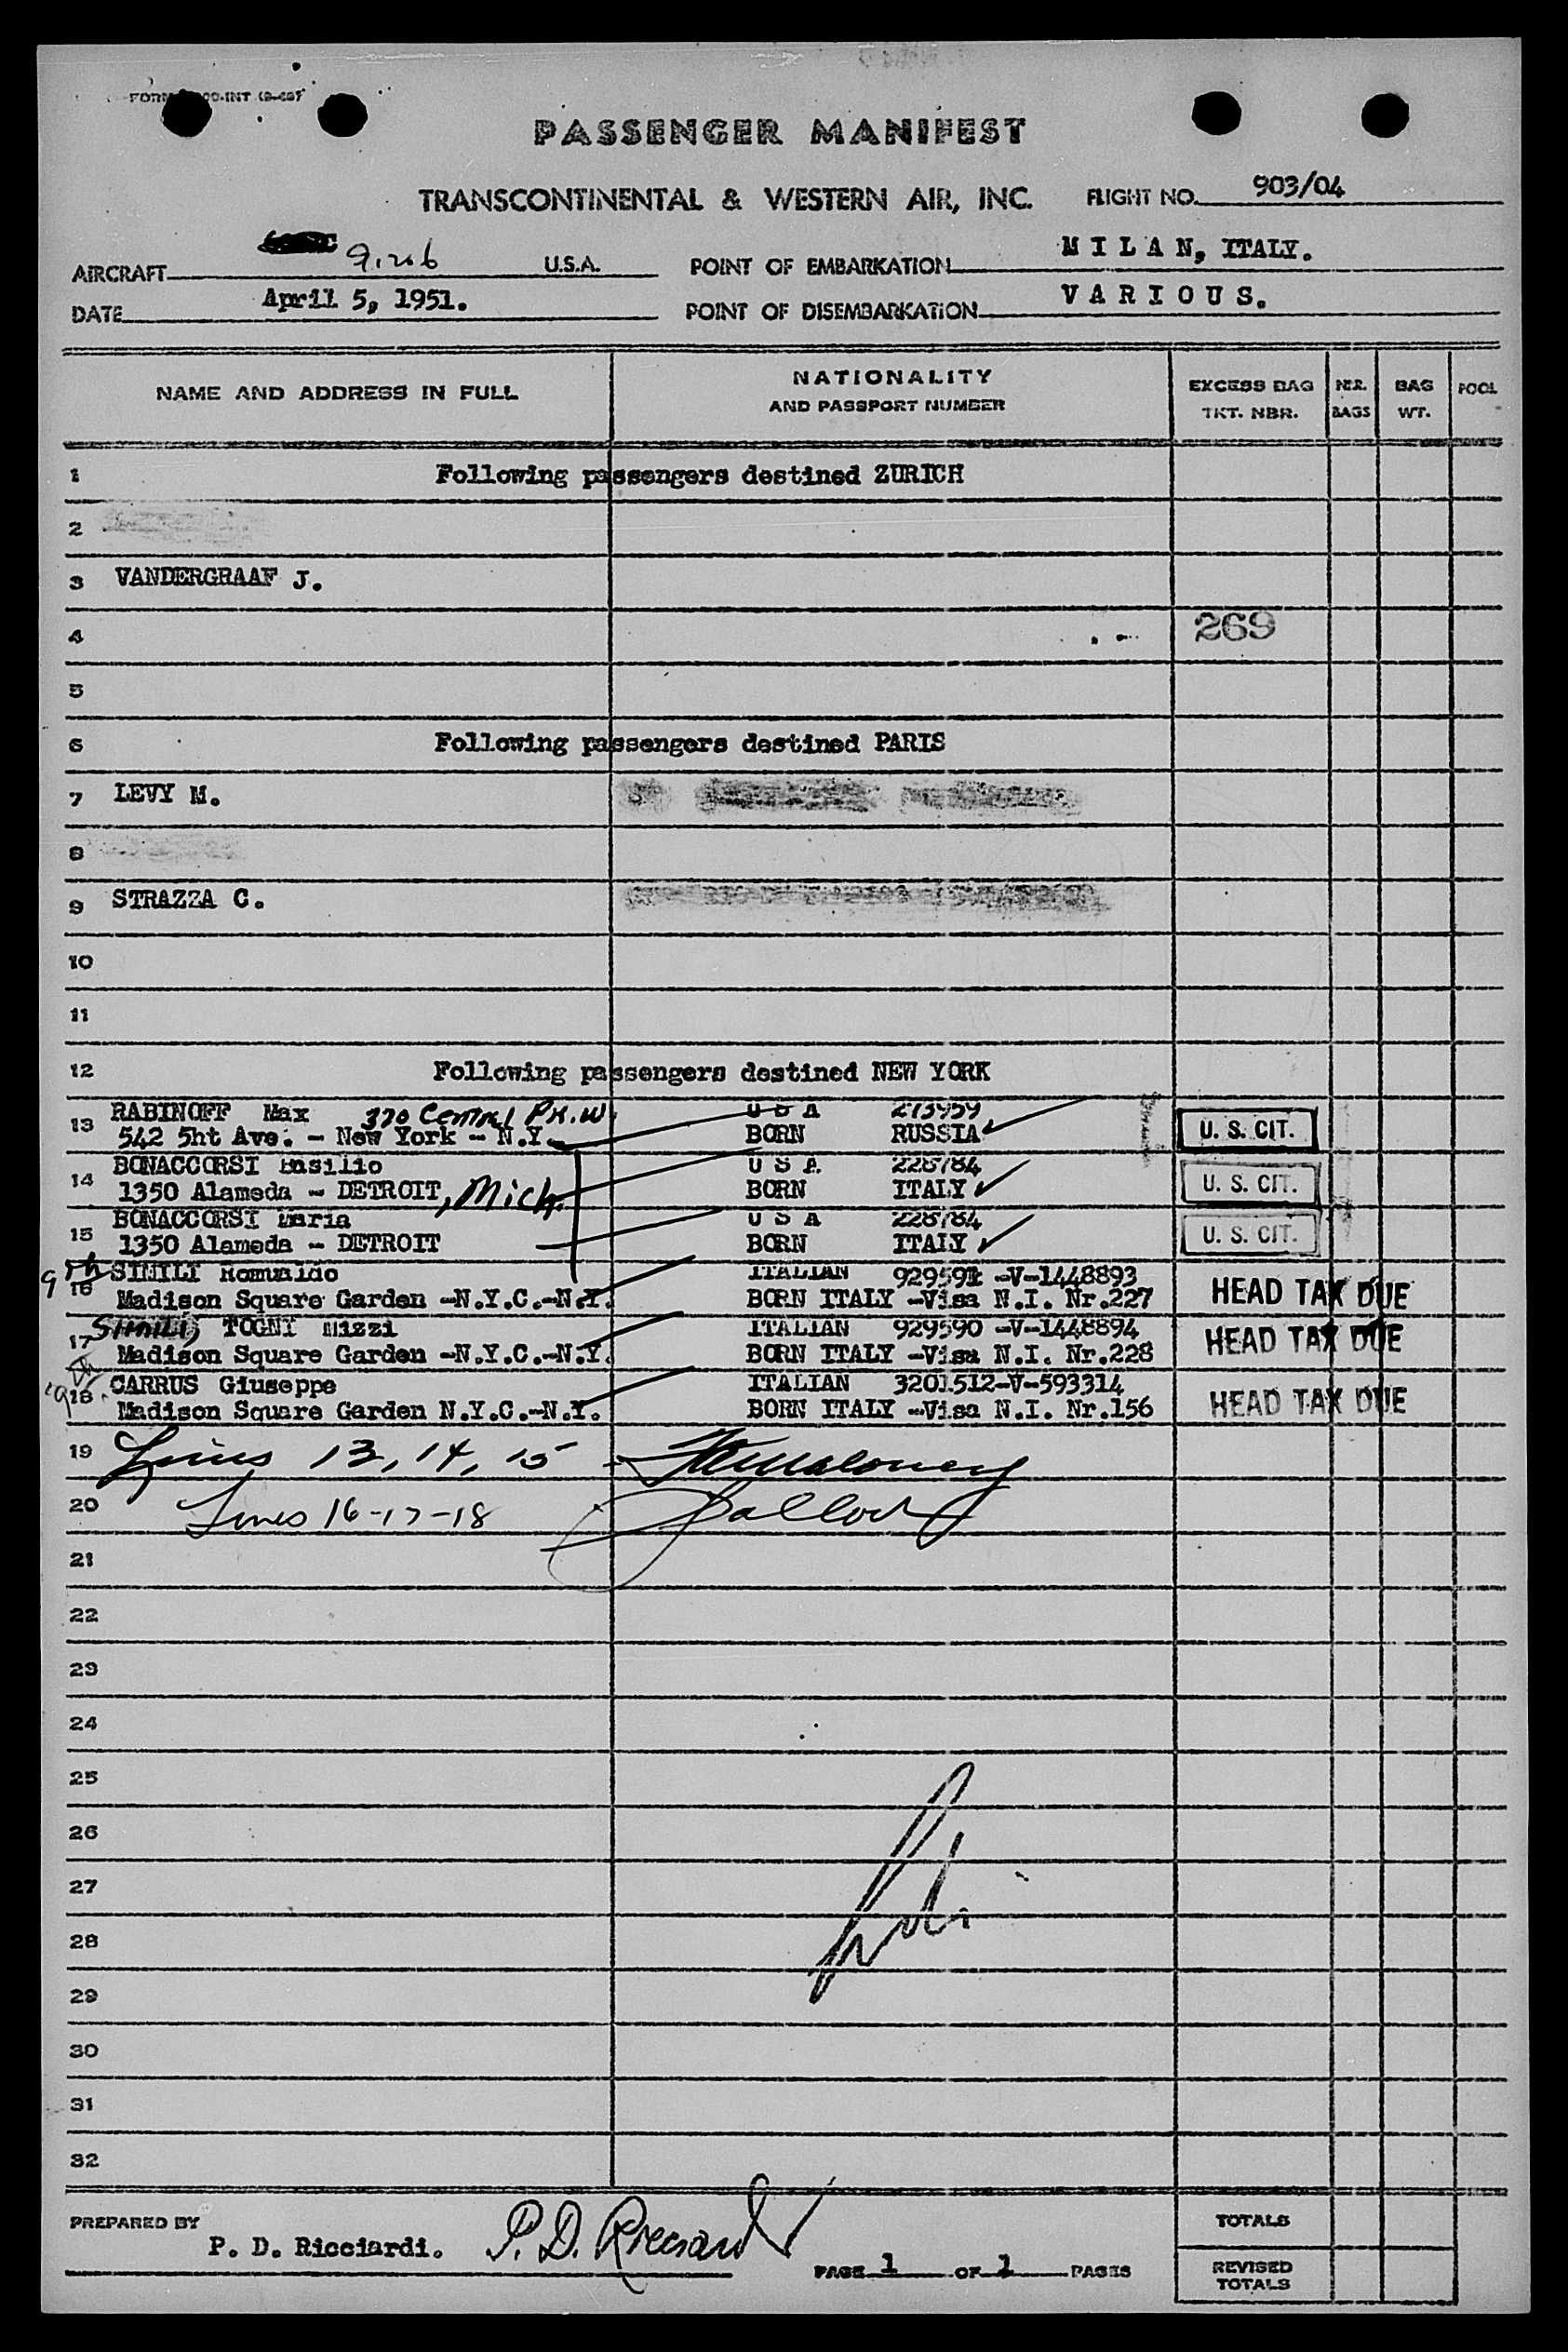 PASSENGER MANIFEST
TRANSCONTINENTAL & WESTERN AIR, INC. FLIGHT NO. 903/04
AIRCRAFT U.S.A. POINT OF EMBARKATION M I L A N, ITALY.
DATE April 5, 1951. POINT OF DISEMBARKATION V A R I O U S.
NAME AND ADDRESS IN FULL NATIONALITY AND PASSPORT NUMBER EXCESS BAG TKT. NBR. NBR. BAGS BAG WT. POOL
1 Following passengers destined ZURICH
2
3 VANDERGRAAF J.
4 269
5
6 Following passengers destined PARIS
7 LEVY M.
8
9 STRAZZA C.
10
11
12 Following passengers destined NEW YORK
13 RABINOFF Max 370 Central Pk. W. U S A 273959
542 5ht Ave. - New York - N.Y. BORN RUSSIA U. S. CIT.
14 BONACCORSI Basilio U S A 228784
1350 Alameda - DETROIT, Mich. BORN ITALY U. S. CIT.
15 BONACCORSI Maria U S A 228784
1350 Alameda - DETROIT BORN ITALY U. S. CIT.
16 SIMILI Romualdo ITALIAN 929591 -V-1448893
Madison Square Garden -N.Y.C.-N.Y. BORN ITALY -Visa N.I. Nr.227 HEAD TAX DUE
17 SIMILI, TOGNI Mizzi ITALIAN 929590 -V-1448894
Madison Square Garden -N.Y.C.-N.Y. BORN ITALY -Visa N.I. Nr.228 HEAD TAX DUE
18 CARRUS Giuseppe ITALIAN 3201512-V-593314
Madison Square Garden N.Y.C.-N.Y. BORN ITALY -Visa N.I. Nr.156 HEAD TAX DUE
19 Lines 13, 14, 15
20 Lines 16-17-18
21
22
23
24
25
26
27
28
29
30
31
32
PREPARED BY P. D. Ricciardi. P. D. Ricciardi PAGE 1 OF 1 PAGES
TOTALS
REVISED TOTALS